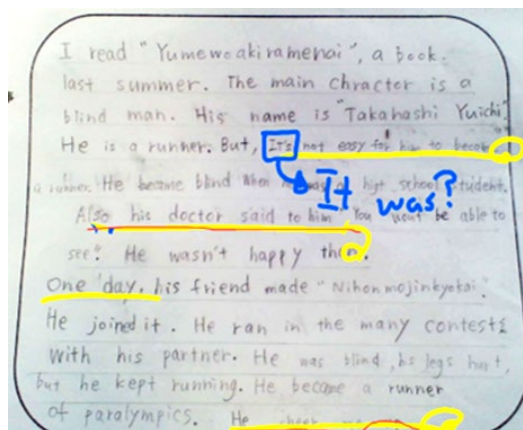 I read "Yumewoakiramenai", a book.
last summer. The main chractor is a
blind man. His name is "Takahashi Yuichi".
He is a runner. But, It's not easy for him to become
a runner. He became blind when he was a high school student.
It was?
Also his doctor said to him "You won't be able to
see". He wasn't happy then.
One day, his friend made "Nihonmojinkyokai".
He joined it. He ran in the many contests
with his partner. He was blind, his legs hurt,
but he kept running. He became a runner
of paralympics. He cheer